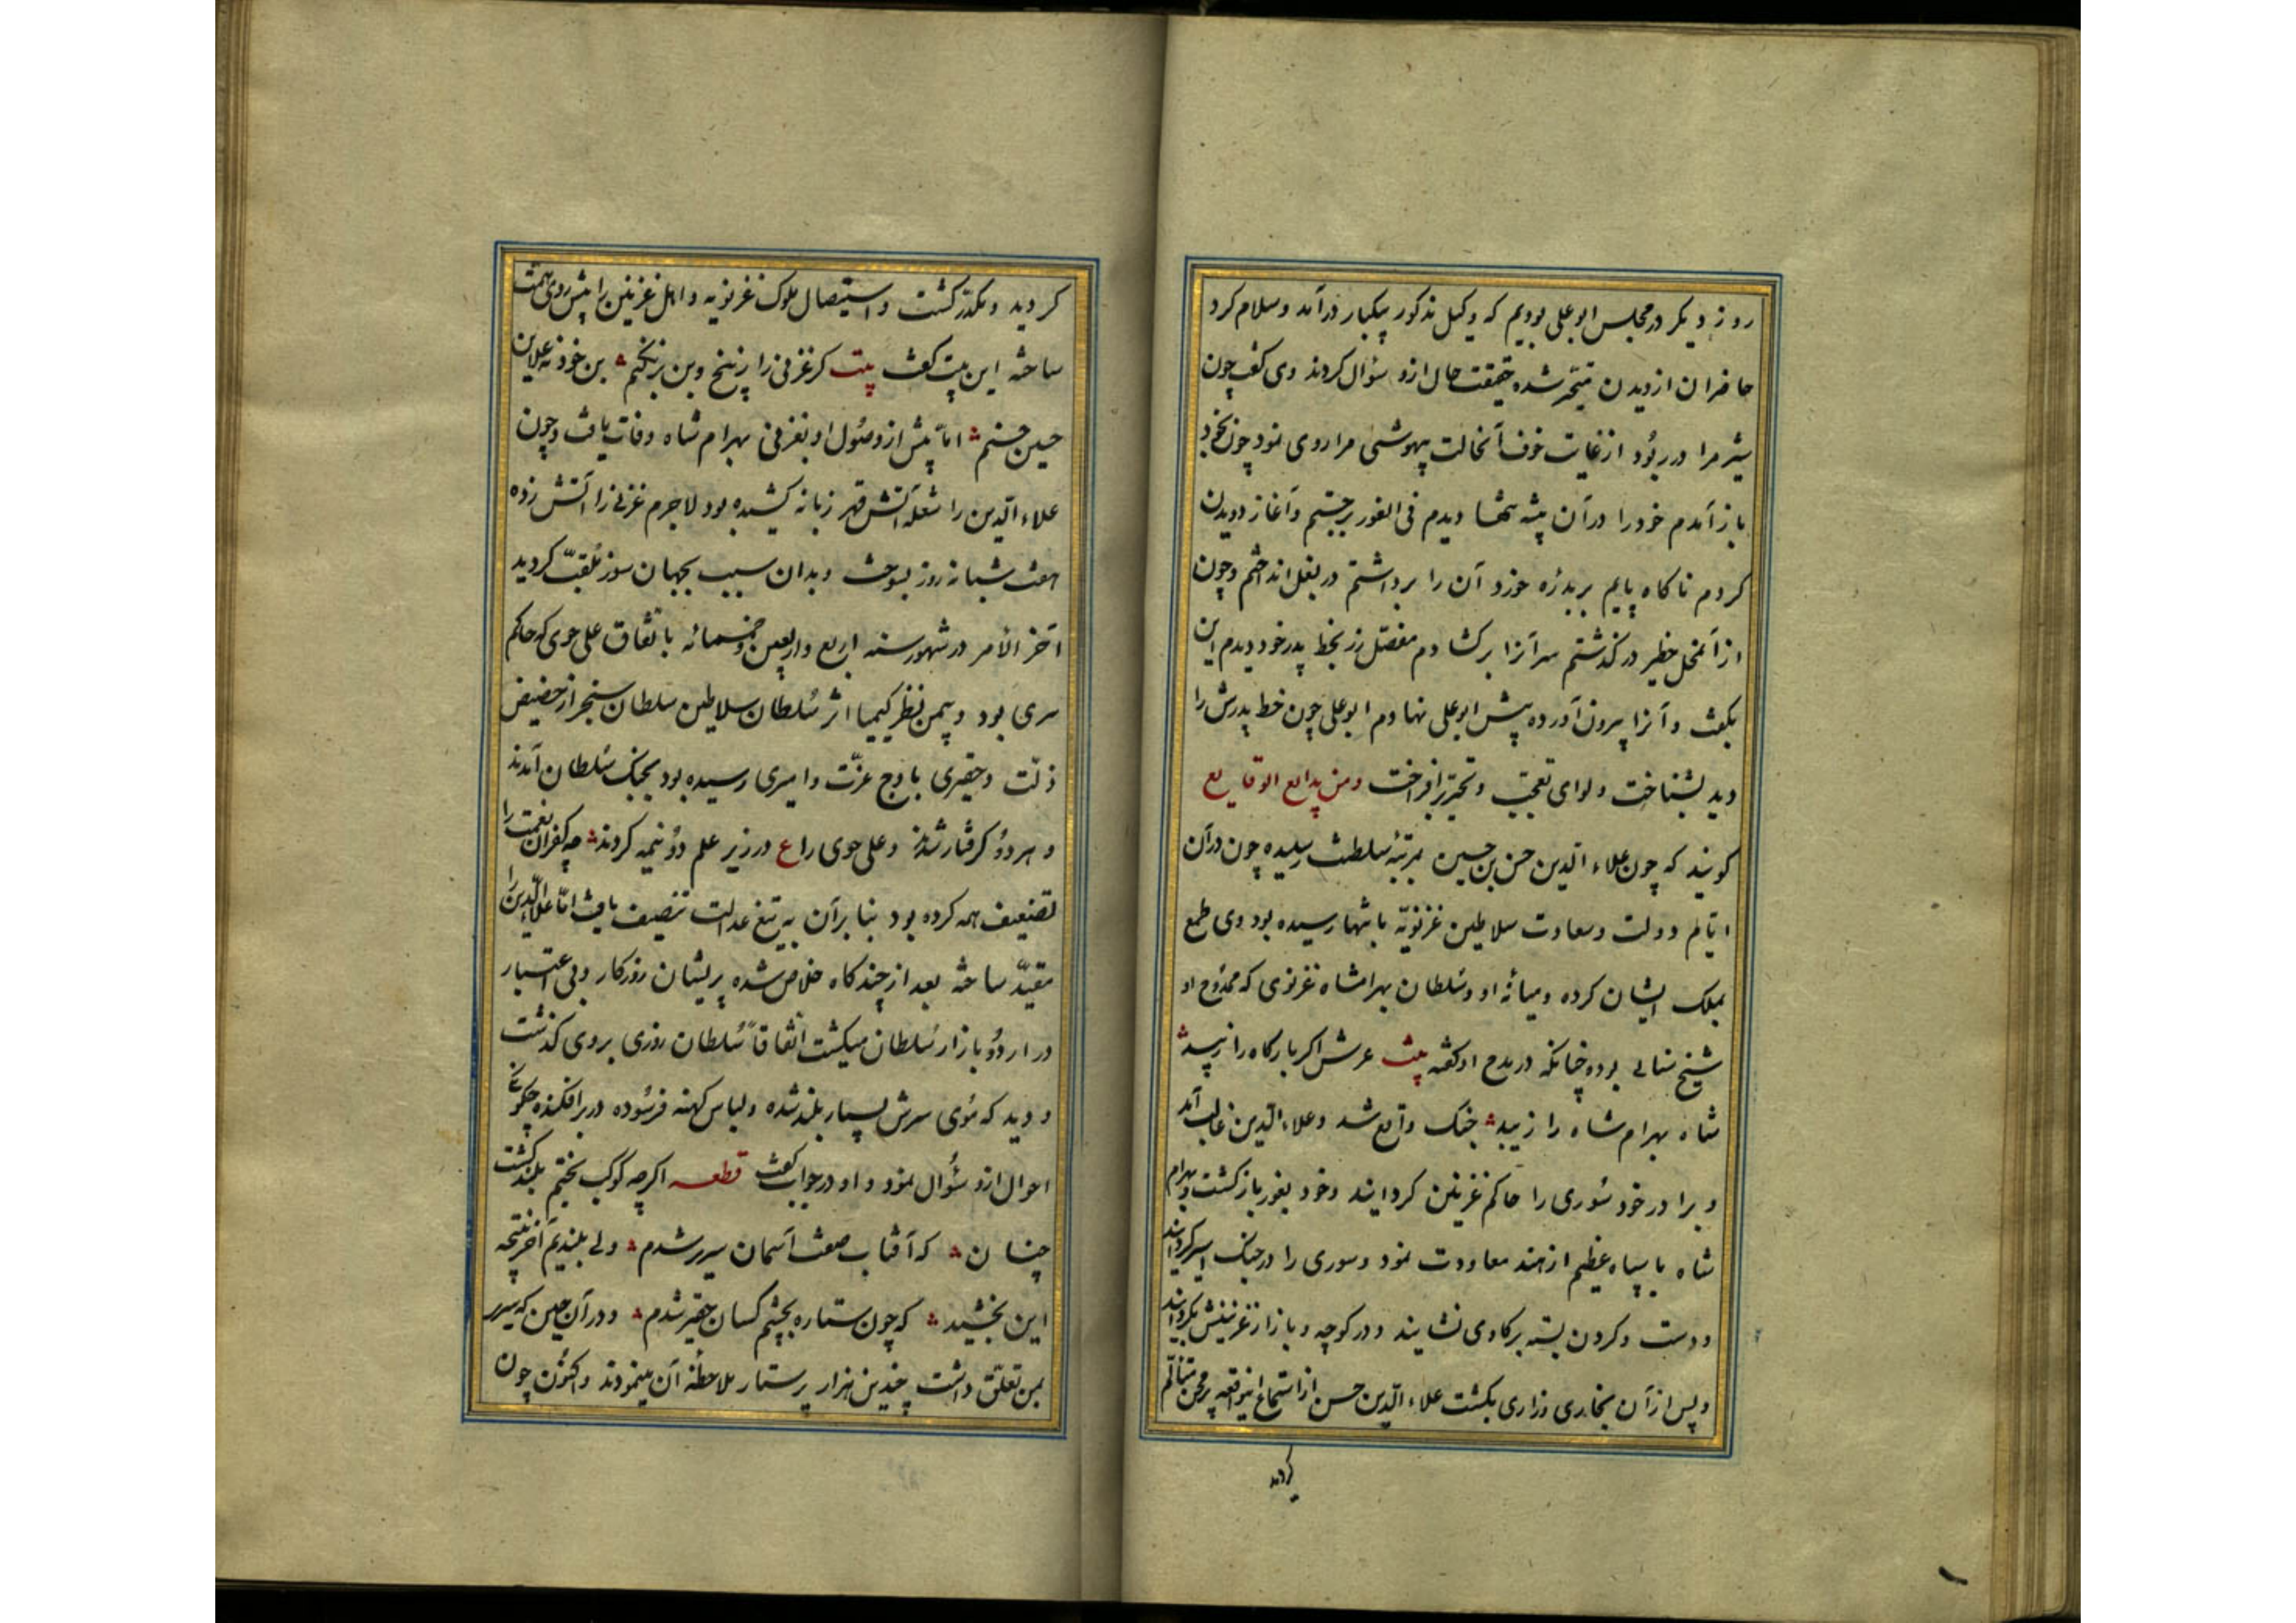 روز دیکر در مجلس ابو علی بودیم که وکیل مذکور پیکبار درآمد و سلام کرد
حاضران از دیدن متحیر شده حقیقت حال ازو سؤال کردند وی کفت چون
شیر مرا در ربود از غایت خوف آنحالت بیهوشی مرا روی نمود چون بخود
باز آمدم خود را در آن بیشه تنها دیدم فی الفور برجستم و آغاز دویدن
کردم ناکاه پایم بر بدره خورد آن را برداشتم در بغل انداختم و چون
از آنمحل خطیر درکذشتم سر آنرا برکشادم مفصل زر بخط پدر خود دیدم این
بکفت و آنرا بیرون آورده پیش ابو علی نهادم ابو علی چون خط پدرش را
دید بشناخت و لوای تعجب و تحیر برافراخت ومن بدایع الوقایع
کویند که چون علاء الدین حسن بن حسین بمرتبهٔ سلطنت رسیده چون در آن
ایام دولت و سعادت سلاطین غزنویه بانتها رسیده بود وی طمع
بملک ایشان کرده و میانهٔ او و سلطان بهرامشاه غزنوی که ممدوح او
شیخ سنائی بوده چنانکه در مدح او کفته بیت عرش اکر بارکاه را زیبد
شاه بهرام شاه را زیبد جنک واقع شد و علاء الدین غالب آمد
و برادر خود سوری را حاکم غزنین کردانید و خود بغور بازکشت و بهرام
شاه با سپاه عظیم از هند معاودت نمود و سوری را در جنک اسیر کردانید
و دست و کردن بسته بر کاوی نشانید و در کوچه و بازار غزنینش بکردانید
و پس از آن بخاری وزاری بکشت علاء الدین حسن از استماع اینواقعه پر محن متألم
کردید
کردید و مکدر کشت و استیصال ملوک غزنویه و اهل غزنین را پیش روی همت
ساخته این بیت کفت بیت کر غزنی را ز بیخ و بن بر نکنم من خود نه علاءالدین
حسین حسنم اما پیش از وصول او بغزنی بهرام شاه وفات یافت و چون
علاء الدین را شعلهٔ آتش قهر زبانه کشیده بود لاجرم غزنی را آتش زده
هفت شبانه روز بسوخت و بدان سبب بجهان سوز ملقب کردید
آخر الامر در شهور سنه اربع و اربعین و خمسمائه باتفاق علی جری که حاکم
هری بود و بیمن نظر کیمیا اثر سلطان سلاطین سلطان سنجر از حضیض
ذلت و حقیری باوج عزت و امیری رسیده بود بجنک سلطان آمدند
و هر دو کرفتار شدند و علی جری را ع در زیر علم دو نیمه کردند چه کفران نعمت را
تضعیف همه کرده بود بنا برآن به تیغ عدالت تنصیف یافت اما علاء الدین را
مقید ساخته بعد از چند کاه خلاص شده پریشان روزکار و بی اعتبار
در اردو بازار سلطان میکشت اتفاقاً سلطان روزی بروی کذشت
و دید که موی سرش بسیار بلند شده و لباس کهنه فرسوده در بر افکنده چکونگی
احوال ازو سؤال نمود و او در جواب کفت قطعه اکرچه کوکب بختم بلند کشت
چنان که آفتاب صفت آسمان سریر شدم ولی بلندیم آخر نتیجه
این بخشید که چون ستاره بچشم کسان حقیر شدم و در آن حین که سرم
بمن تعلق داشت چندین هزار پرستار ملاحظهٔ آن مینمودند و اکنون چون